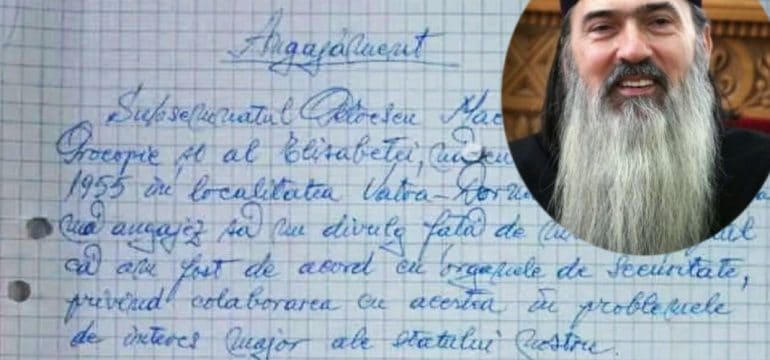 Angajament
Subsemnatul Mac
Procopie și al Elisabetei,
1955 în localitatea Vatra-Dorn
mă angajez să nu divulg față de
că am fost de acord cu organele de securitate,
privind colaborarea cu acestia în problemele
de interes major ale statului nostru.